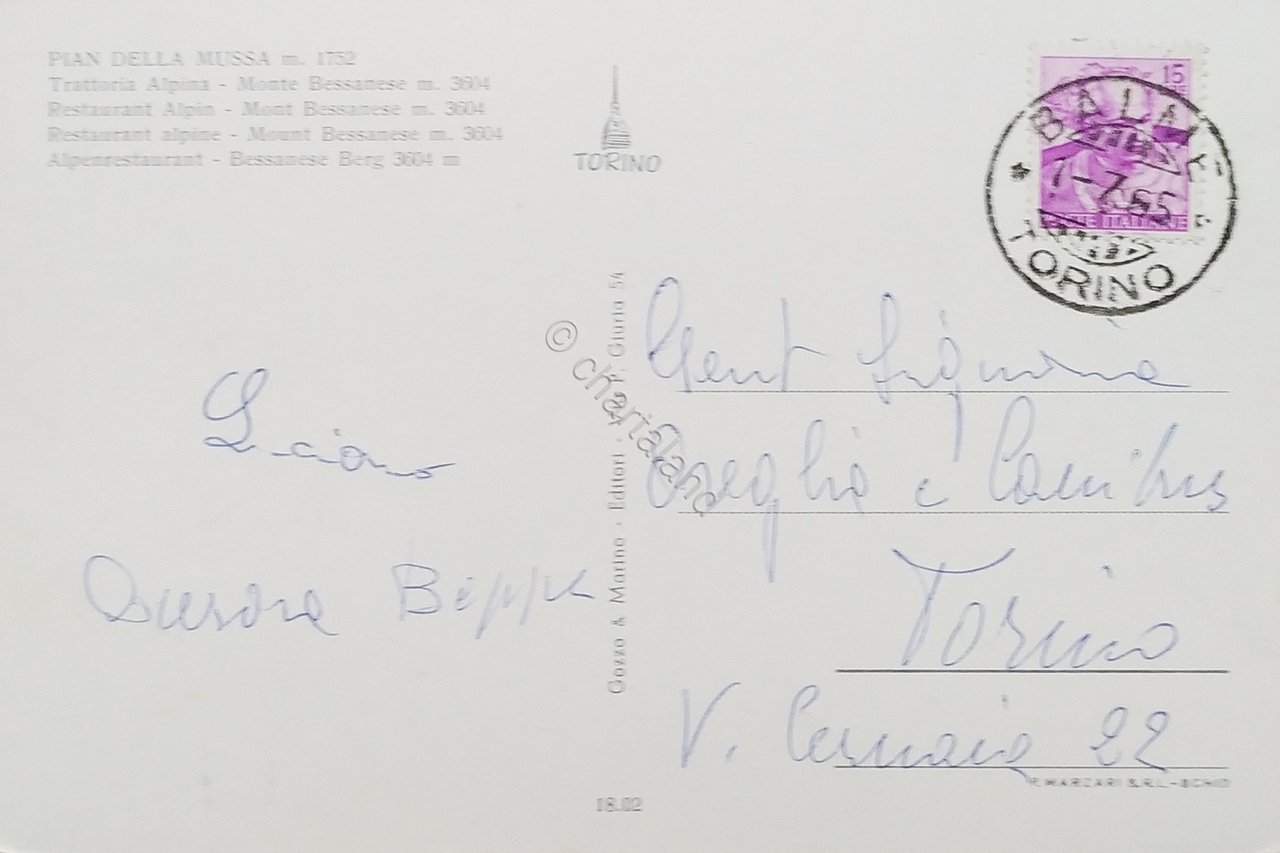 PIAN DELLA MUSSA m. 1752
Trattoria Alpina - Monte Bessanese m. 3604
Restaurant Alpin - Mont Bessanese m. 3604
Restaurant alpine - Mount Bessanese m. 3604
Alpenrestaurant - Bessanese Berg 3604 m
TORINO
15
BALME
7-7.65
TORINO
POSTE ITALIANE
Gozzo & Marino - Editori - Giuria 54
© chartaland
Gent
Torino
V. Cernaia 22
Luciano
Aurora Beppe
P. MARZARI S.R.L. - SCHIO
18.02